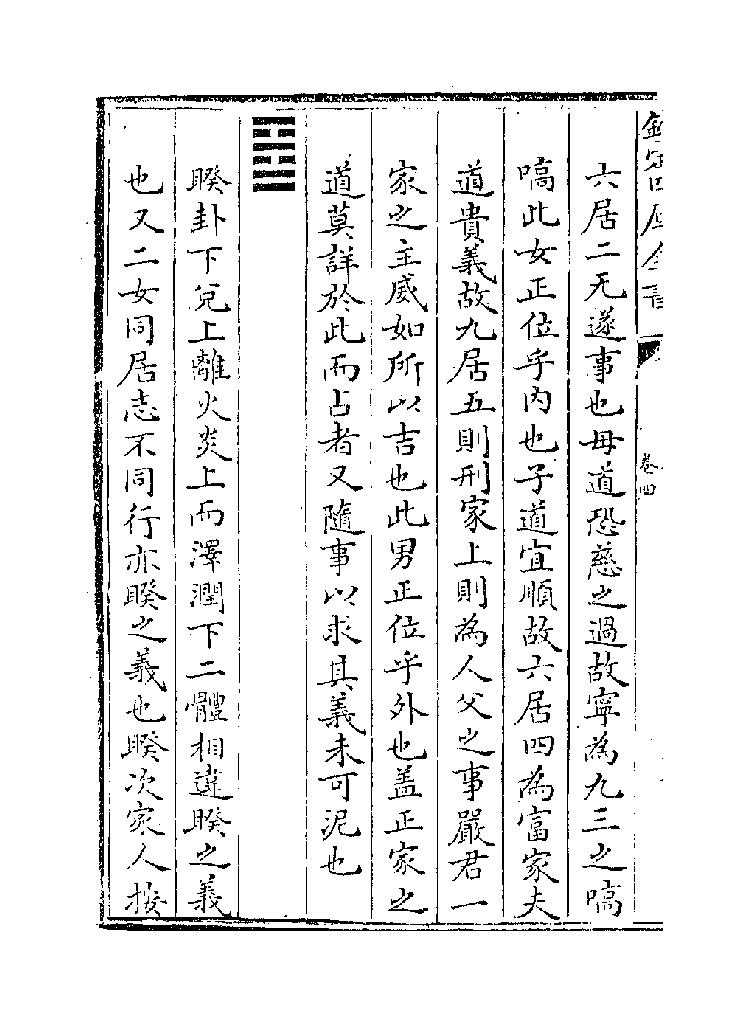 欽定四庫全書
卷四
六居二无遂事也毋道恐慈之過故寧為九三之嗃
嗃此女正位乎内也子道宜順故六居四為富家夫
道貴義故九居五則刑家上則為人父之事嚴君一
家之主威如所以吉也此男正位乎外也盖正家之
道莫詳於此而占者又隨事以求其義未可泥也
䷥
睽卦下兌上離火炎上而澤潤下二體相違睽之義
也又二女同居志不同行亦睽之義也睽次家人按